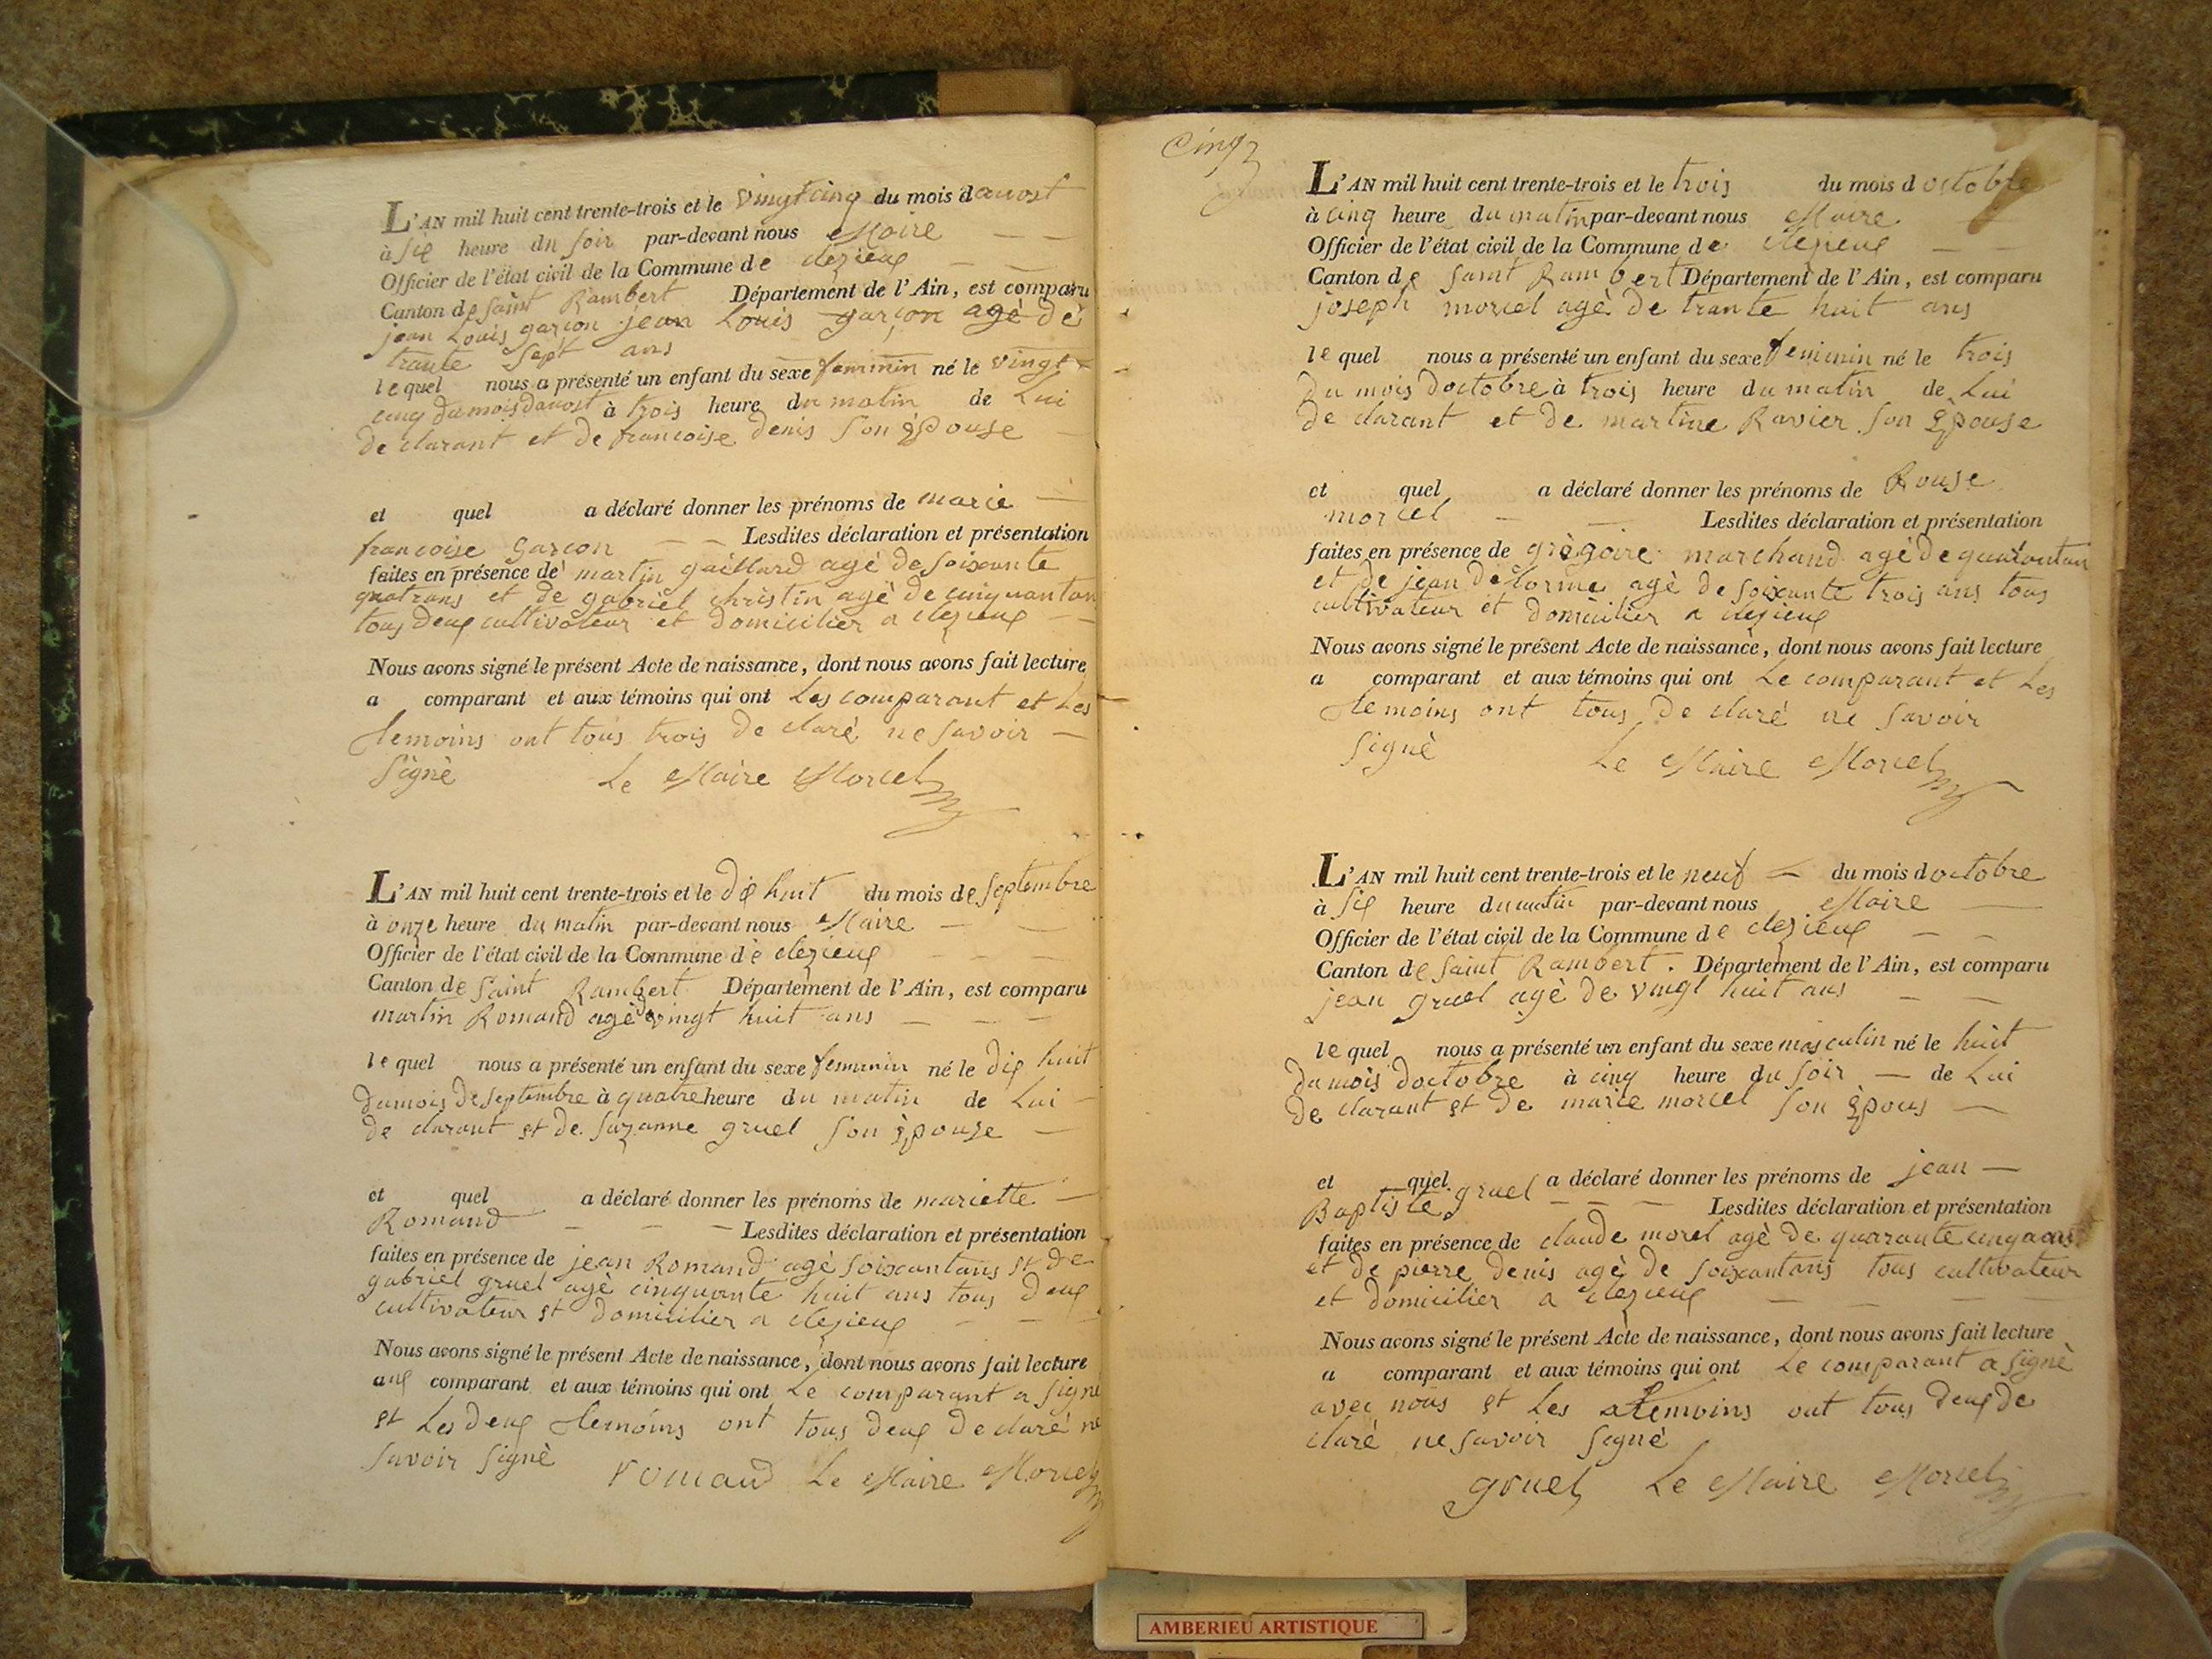 L'AN mil huit cent trente-trois et le vingt cinq du mois d auost
à six heure du soir par-devant nous Maire
Officier de l'état civil de la Commune de clezieux
Canton de saint Rambert Département de l'Ain, est comparu
jean Louis garçon jean Louis garçon agé de
trante sept ans
le quel nous a présenté un enfant du sexe feminin né le vingt
cinq du mois d auost à trois heure du matin de Lui
de clarant et de francoise denis son Epouse
et quel a déclaré donner les prénoms de marie
francoise garcon Lesdites déclaration et présentation
faites en présence de martin gaillard agé de soixante
quatrans et de gabriel christin agè de cinquantan
tous deux cultivateur et domicilier a clezieux
Nous avons signé le présent Acte de naissance, dont nous avons fait lecture
a comparant et aux témoins qui ont Les comparant et Les
temoins ont tous trois de claré ne savoir
signè Le Maire Morcel
L'AN mil huit cent trente-trois et le dix huit du mois de septembre
à onze heure du matin par-devant nous Maire
Officier de l'état civil de la Commune de clezieux
Canton de saint Rambert Département de l'Ain, est comparu
martin Romand agè de vingt huit ans
le quel nous a présenté un enfant du sexe feminin né le dix huit
du mois de septembre à quatre heure du matin de Lui
de clarant et de suzanne gruel son Epouse
et quel a déclaré donner les prénoms de mariette
Romand Lesdites déclaration et présentation
faites en présence de jean Romand agè soixantans et de
gabriel gruel agè cinquante huit ans tous deux
cultivateur et domicilier a clezieux
Nous avons signé le présent Acte de naissance, dont nous avons fait lecture
aux comparant et aux témoins qui ont Le comparant a signé
et Les deux temoins ont tous deux de claré ne
savoir signè romand Le Maire Morcel
Cinq
L'AN mil huit cent trente-trois et le trois du mois d octobre
à cinq heure du matin par-devant nous Maire
Officier de l'état civil de la Commune de clezieux
Canton de saint Rambert Département de l'Ain, est comparu
joseph morcel agè de trante huit ans
le quel nous a présenté un enfant du sexe feminin né le trois
du mois doctobre à trois heure du matin de Lui
de clarant et de martine Ravier son Epouse
et quel a déclaré donner les prénoms de Rouse
morcel Lesdites déclaration et présentation
faites en présence de grègoire marchand agè de quarantan
et de jean delorme agè de soixante trois ans tous
cultivateur et domicilier a clezieux
Nous avons signé le présent Acte de naissance, dont nous avons fait lecture
a comparant et aux témoins qui ont Le comparant et Les
temoins ont tous de claré ne savoir
signè Le Maire Morcel
L'AN mil huit cent trente-trois et le neuf du mois d octobre
à six heure du matin par-devant nous Maire
Officier de l'état civil de la Commune de clezieux
Canton de saint Rambert. Département de l'Ain, est comparu
jean gruel agè de vingt huit ans
le quel nous a présenté un enfant du sexe masculin né le huit
du mois doctobre à cinq heure du soir de Lui
de clarant et de marie morcel son Epous
et quel a déclaré donner les prénoms de jean
Baptiste gruel Lesdites déclaration et présentation
faites en présence de claude morel agè de quarante cinq ans
et de pierre denis agè de soixantans tous cultivateur
et domicilier a clezieux
Nous avons signé le présent Acte de naissance, dont nous avons fait lecture
a comparant et aux témoins qui ont Le comparant a signè
avec nous et Les temoins ont tous deux de
claré ne savoir signè
gruel Le Maire Morcel
AMBERIEU ARTISTIQUE